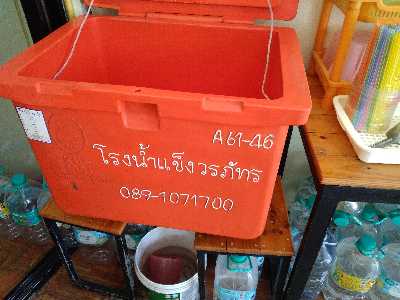 A61-46
โรงน้ำแข็งวรภัทร
089-1071700